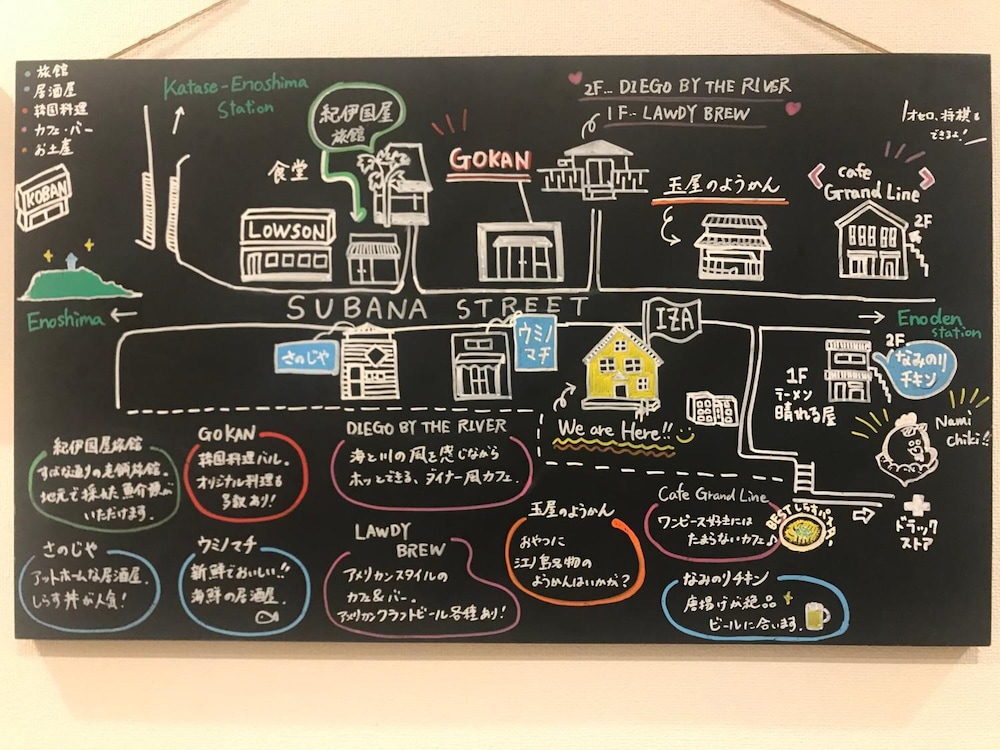 旅館
居酒屋
韓国料理
カフェ・バー
お土産
KOBAN
Katase-Enoshima
Station
紀伊国屋
旅館
食堂
GOKAN
2F… DIEGO BY THE RIVER
1F… LAWDY BREW
オセロ、将棋も
できるよ!
玉屋のようかん
cafe
Grand Line
2F
LOWSON
SUBANA STREET
Enoshima ←
→ Enoden
station
さのじや
ウミノ
マチ
IZA
We are Here!!
2F
なみのり
チキン
1F
ラーメン
晴れる屋
Nami
chiki!!
ドラッグ
ストア
紀伊国屋旅館
すばな通りの老舗旅館。
地元で採れた魚介類が
いただけます。
GOKAN
韓国料理バル。
オリジナル料理も
多数あり!
DIEGO BY THE RIVER
海と川の風を感じながら
ホッとできる、ダイナー風カフェ。
さのじや
アットホームな居酒屋。
しらす丼が人気!
ウミノマチ
新鮮でおいしい!!
海鮮の居酒屋。
LAWDY
BREW
アメリカンスタイルの
カフェ&バー。
アメリカンクラフトビール各種あり!
玉屋のようかん
おやつに
江ノ島名物の
ようかんはいかが?
Cafe Grand Line
ワンピース好きには
たまらないカフェ♪
BEST しらすパスタ!
なみのりチキン
唐揚げが絶品
ビールに合います。